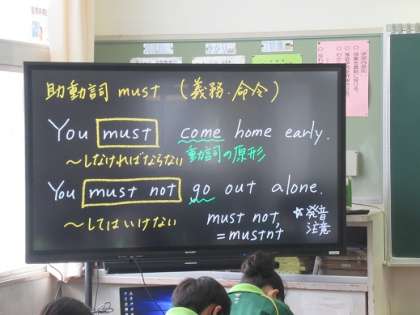 助動詞 must (義務・命令)
You must come home early.
〜しなければならない 動詞の原形
You must not go out alone.
〜してはいけない
must not,
=mustnt
☆発音
注意